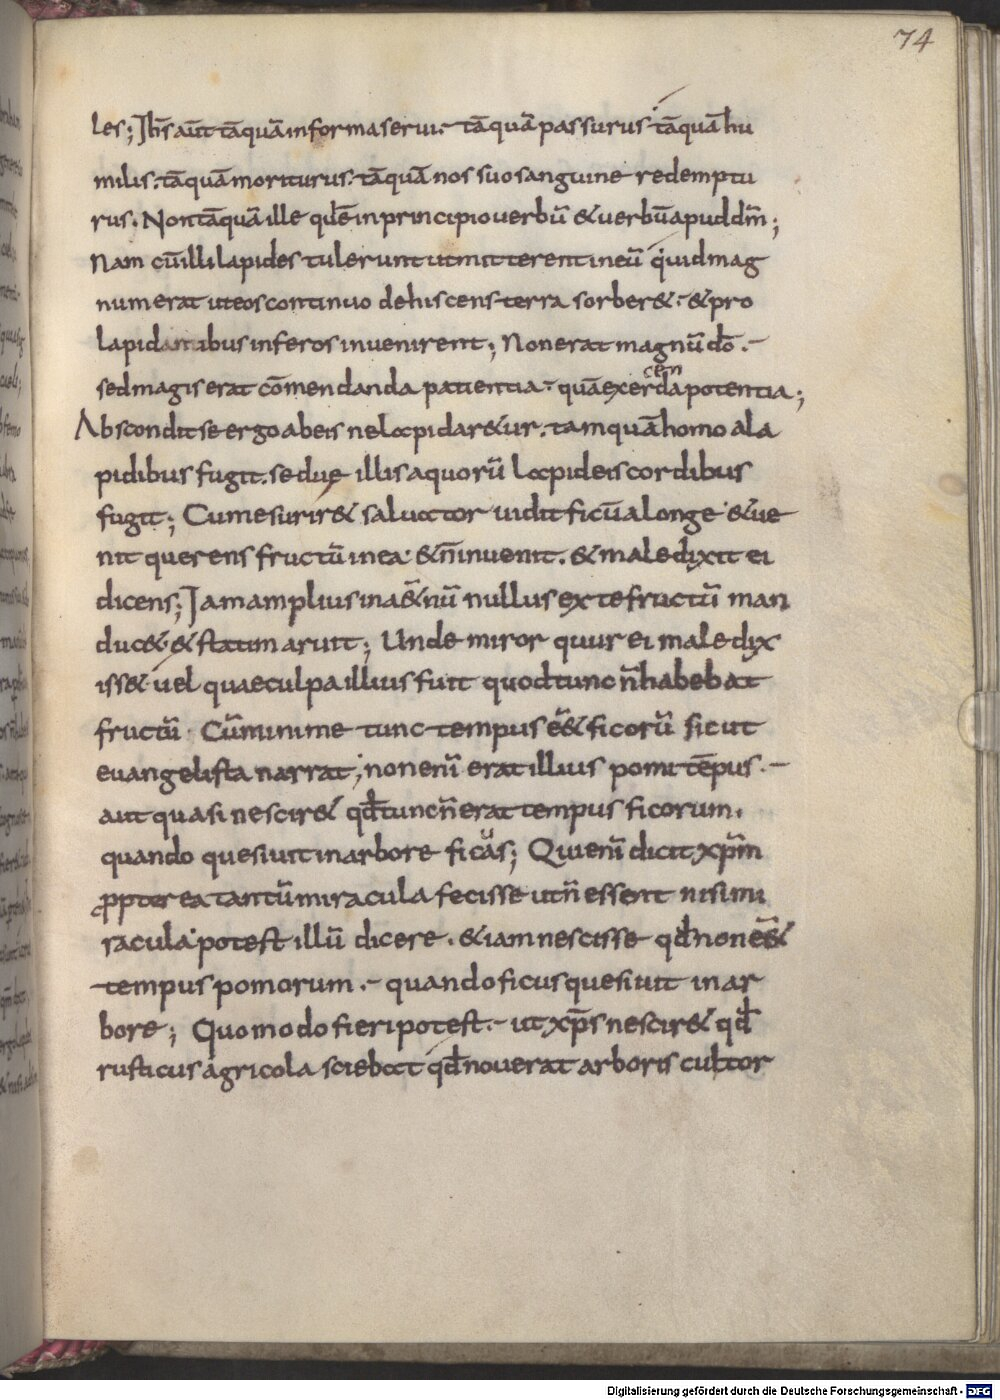 74
les; Ihs aūt tāquā in forma serui. tāquā passurus tāquā hu
milis. tāquā moriturus. tāquā nos suo sanguine redemptu
rus. Non tāquā ille qđ ē in principio uerbū & uerbū apud dm̄;
Nam cū illi lapides tulerunt ut mitterent in eū quid mag
num erat ut eos continuo dehiscens terra sorber&. & pro
lapidantibus inferos inuenirent; Non erat magnū dō.
sed magis erat cōmendanda patientia. quā exercenda potentia;
Abscondit se ergo ab eis ne lapidar&ur. tamquā homo a la
pidibus fugit. sed ue illis a quorū lapideis cordibus
fugit; Cum esurir& saluator uidit ficū a longe & ue
nit querens fructū in ea & n̄ inuenit. & maledixit ei
dicens; Iam amplius in a&̄nū nullus ex te fructū man
duc& & statim aruit; Unde miror quur ei maledix
iss& uel quae culpa illius fuit quod tunc n̄ habebat
fructū. Cū minime tunc tempus e͞e& ficorū sicut
euangelista narrat; non enī erat illius pomi tēpus.
aut quasi nescir& qđ tunc n̄ erat tempus ficorum.
quando quesiuit in arbore ficus; Qui enī dicit xpm̄
propterea tantū miracula fecisse ut n̄ essent nisi mi
racula potest illū dicere. & iam nescisse qđ non e͞e&
tempus pomorum. quando ficus quesiuit in ar
bore; Quomodo fieri potest. ut xp̄s nescir& qđ
rusticus agricola sciebat qđ nouerat arboris cultor
Digitalisierung gefördert durch die Deutsche Forschungsgemeinschaft - DFG